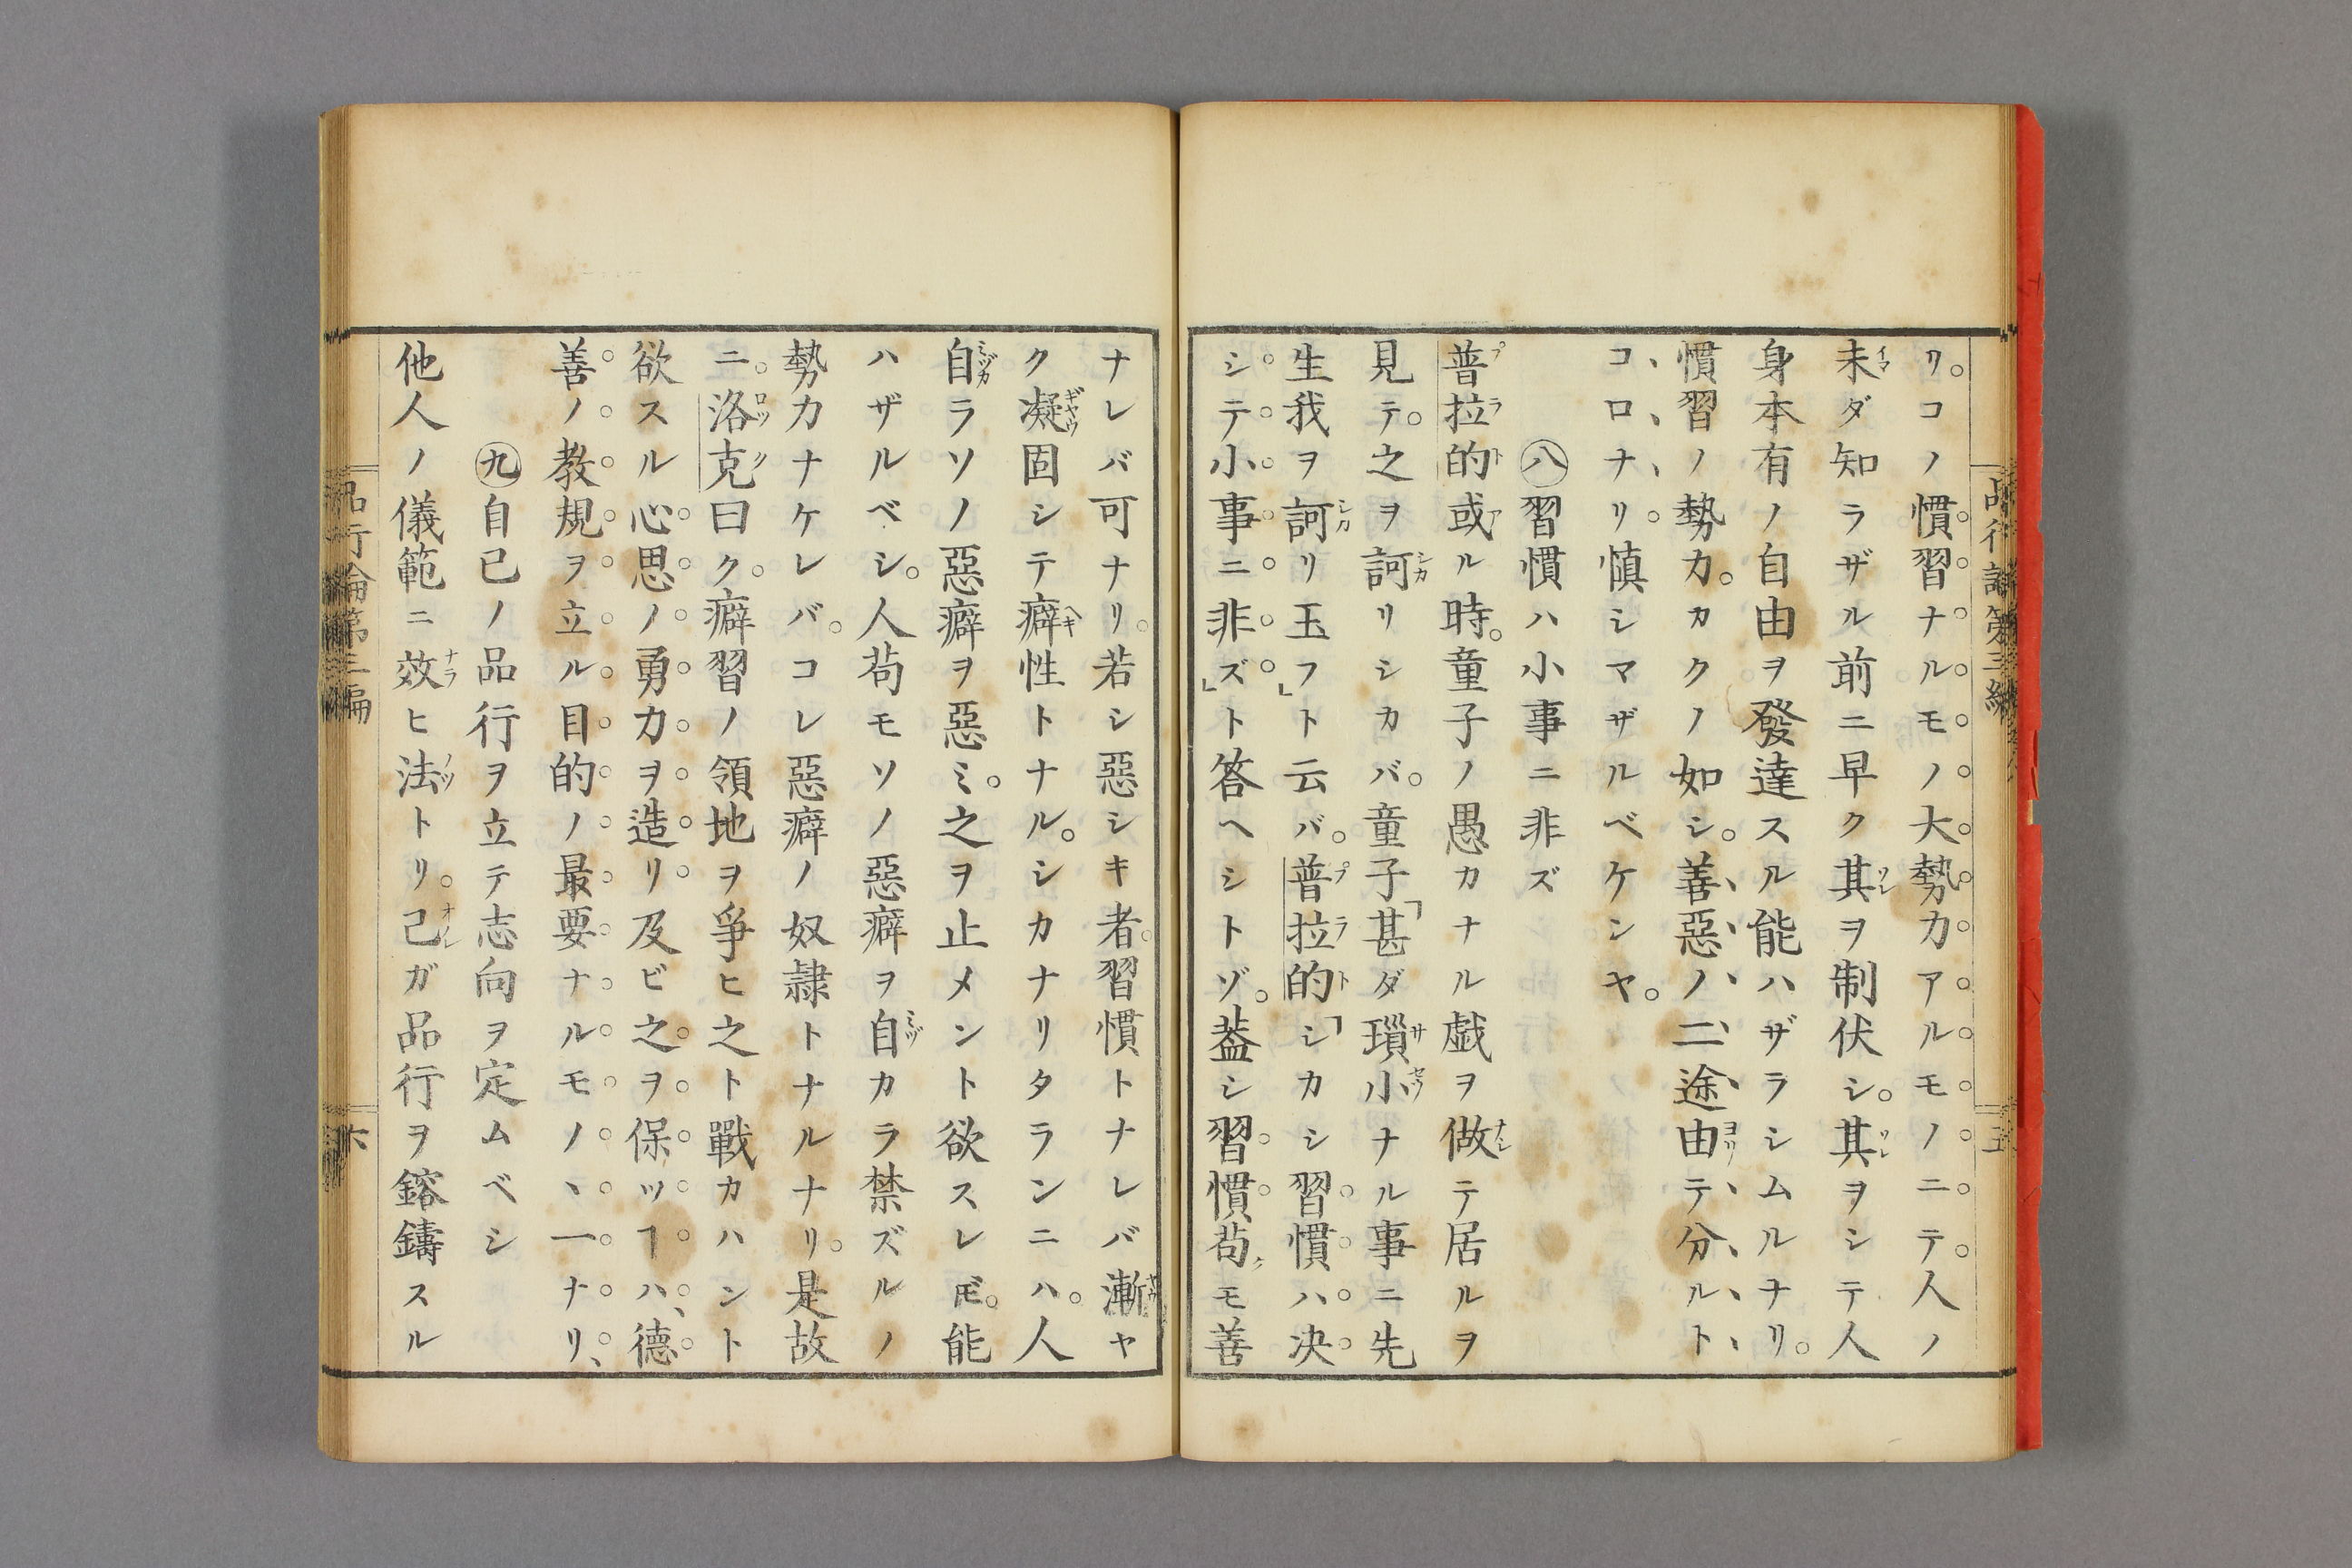 リ。コノ慣習ナルモノ大勢力アルモノニテ。人ノ
未ダ知ラザル前ニ早ク其ヲ制伏シ。其ヲシテ人
身本有ノ自由ヲ發達スル能ハザラシムルナリ。
慣習ノ勢力。カクノ如シ。善惡ノ二途由テ分ルト
コロナリ。慎シマザルベケンヤ。
㊇習慣ハ小事ニ非ズ
普拉的或ル時。童子ノ愚カナル戯ヲ做テ居ルヲ
見テ。之ヲ訶リシカバ。童子「甚ダ瑣小ナル事ニ先
生我ヲ訶リ玉フ」ト云バ。普拉的「シカシ習慣ハ决
シテ小事ニ非ズ」ト答ヘシトゾ。葢シ習慣苟モ善
品行論第三編
五
ナレバ可ナリ。若シ惡シキ者。習慣トナレバ漸ヤ
ク凝固シテ癖性トナル。シカナリタランニハ。人
自ラソノ惡癖ヲ惡ミ。之ヲ止メント欲スレ𪜈。能
ハザルベシ。人苟モソノ惡癖ヲ自カラ禁ズルノ
勢力ナケレバ。コレ惡癖ノ奴隷トナルナリ。是故
ニ。洛克曰ク。癖習ノ領地ヲ爭ヒ之ト戰カハント
欲スル心思ノ勇力ヲ造リ及ビ之ヲ保ツヿハ、德
善ノ教規ヲ立ル目的ノ最要ナルモノヽ一ナリ、
㊈自己ノ品行ヲ立テ志向ヲ定ムベシ
他人ノ儀範ニ效ヒ法トリ。己ガ品行ヲ鎔鑄スル
品行論第三編
六